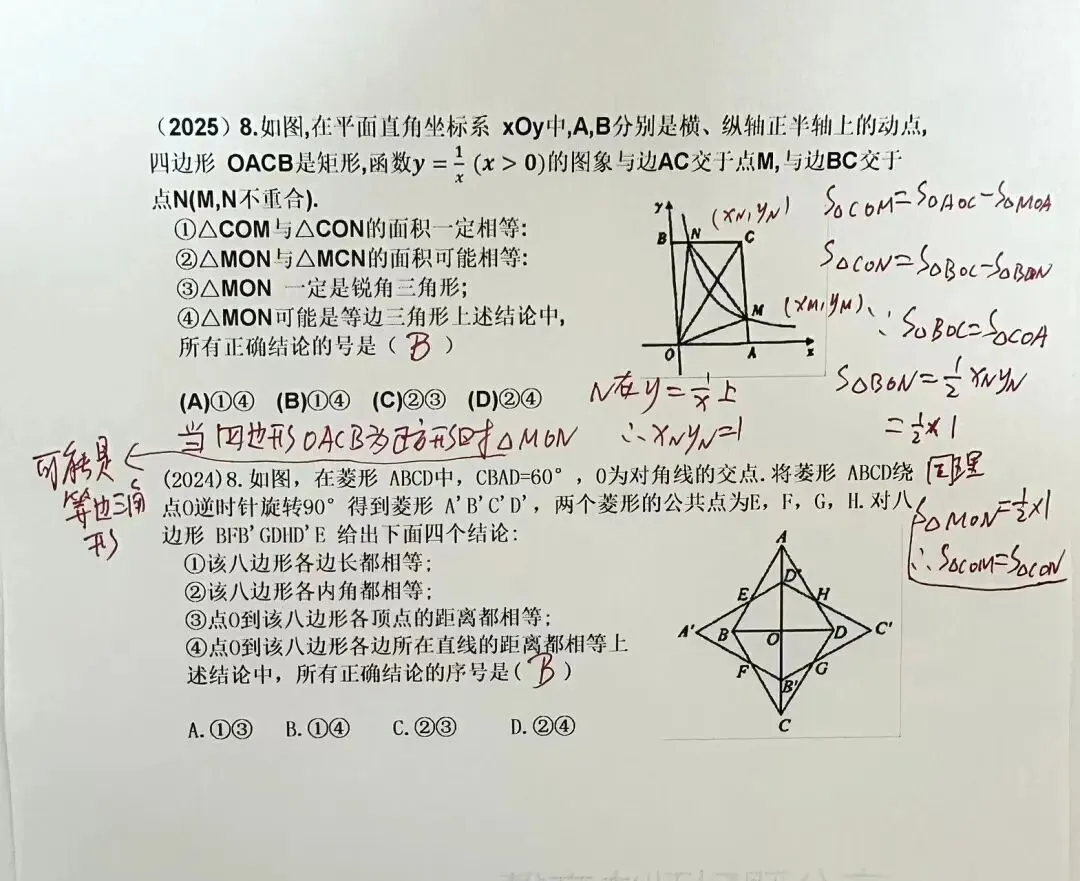 （2025）8.如图,在平面直角坐标系 xOy中,A,B分别是横、纵轴正半轴上的动点,
四边形 OACB是矩形,函数y = 1/x (x > 0)的图象与边AC交于点M,与边BC交于
点N(M,N不重合).
①△COM与△CON的面积一定相等:
②△MON与△MCN的面积可能相等:
③△MON 一定是锐角三角形;
④△MON可能是等边三角形上述结论中,
所有正确结论的号是（ B ）
(A)①④ (B)①④ (C)②③ (D)②④
y
B
N
C
(xN, yN)
M
(xM, yM)
O
A
x
S△COM=S△AOC-S△MOA
S△CON=S△BOC-S△BON
∵S△BOC=S△COA
S△BON=1/2 xNyN
=1/2×1
N在y=1/x上
∴xNyN=1
同理
S△MON=1/2×1
∴S△COM=S△CON
当四边形OACB为正方形时△MON
可能是
等边三角
形
(2024)8.如图，在菱形 ABCD中，CBAD=60°，O为对角线的交点.将菱形 ABCD绕
点O逆时针旋转90°得到菱形 A'B'C'D'，两个菱形的公共点为E，F，G，H.对八
边形 BFB'GDHD'E 给出下面四个结论:
①该八边形各边长都相等;
②该八边形各内角都相等;
③点O到该八边形各顶点的距离都相等;
④点O到该八边形各边所在直线的距离都相等上
述结论中，所有正确结论的序号是( B )
A.①③ B.①④ C.②③ D.②④
A
D'
E
H
A'
B
O
D
C'
F
G
B'
C